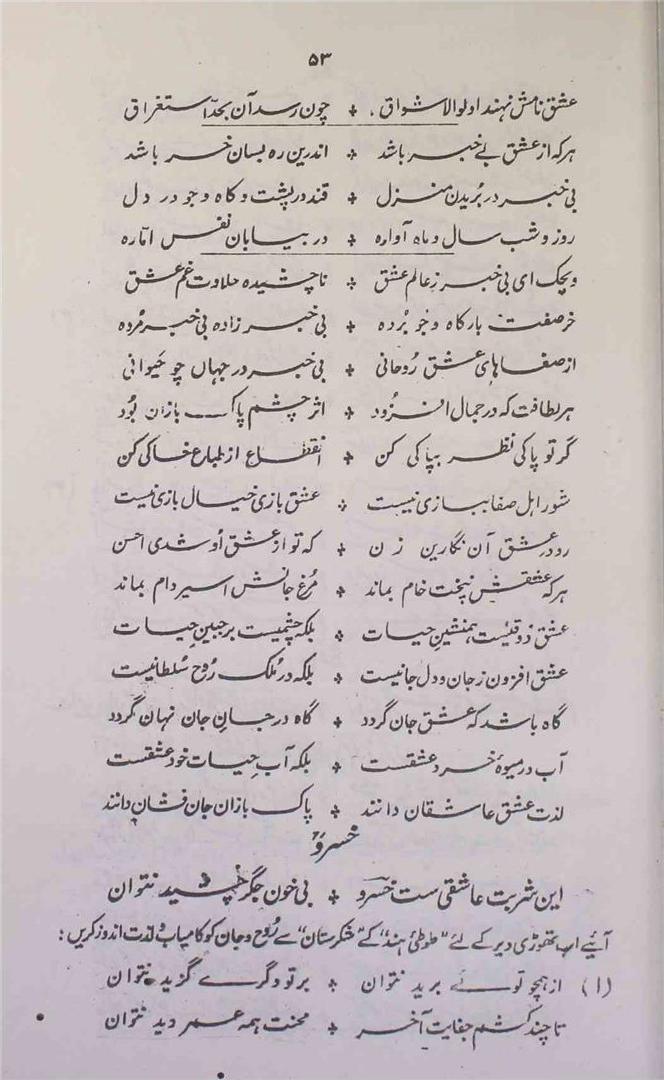 ۵۳
عشق نامش نهند اولوالاشواق ٭ چون رسد آن بحد استغراق
هرکه از عشق بے خبر باشد ٭ اندرین ره بسان خر باشد
بی خبر در بُریدن منزل ٭ قند در پشت و کاه و جو در دل
روز و شب سال و ماه آواره ٭ در بیابان نفس امّاره
ویحک ای بی خبر ز عالم عشق ٭ ناچشیده حلاوت غم عشق
خر صفت بار کاه و جو بُرده ٭ بی خبر زاده بی خبر مُرده
از صفاهای عشق رُوحانی ٭ بی خبر در جهاں چو حَیوانی
هر لطافت که در جمال افزود ٭ اثر چشم پاک بازان بُود
گر تو پاکی نظر بپاکی کن ٭ انقطاع از طباع خاکی کن
شور اہل صفا ببازی نیست ٭ عشق بازی خیال بازی نیست
رو در عشق آن نگارین زن ٭ که تو از عشق اُو شدی احسن
هرکه عشقش نپخت خام بماند ٭ مُرغ جانش اسیر دام بماند
عشق ذوقیست ہمنشینِ حیات ٭ بلکه چشمیست بر جبینِ حیات
عشق افزون ز جان و دل جانیست ٭ بلکه در مُلک رُوح سُلطانیست
گاه باشد که عشق جان گردد ٭ گاه در جانِ جان نهان گردد
آب در میوۂ خرد عشقست ٭ بلکه آبِ حیات خود عشقست
لذت عشق عاشقان دانند ٭ پاک بازان جان فشان دانند
خسروؒ
این شربت عاشقی ست خسرو ٭ بی خون جگر چشید نتوان
آئیے اب تھوڑی دیر کے لئے "طوطئ ہند" کے "شکرستان" سے رُوح و جان کو کامیاب و لذت اندوز کریں:
(۱) از ہمچو توئے برید نتوان ٭ بر تو دگرے گزید نتوان
تا چند کشم جفایت آخر ٭ محنت ہمه عمر دید نتوان